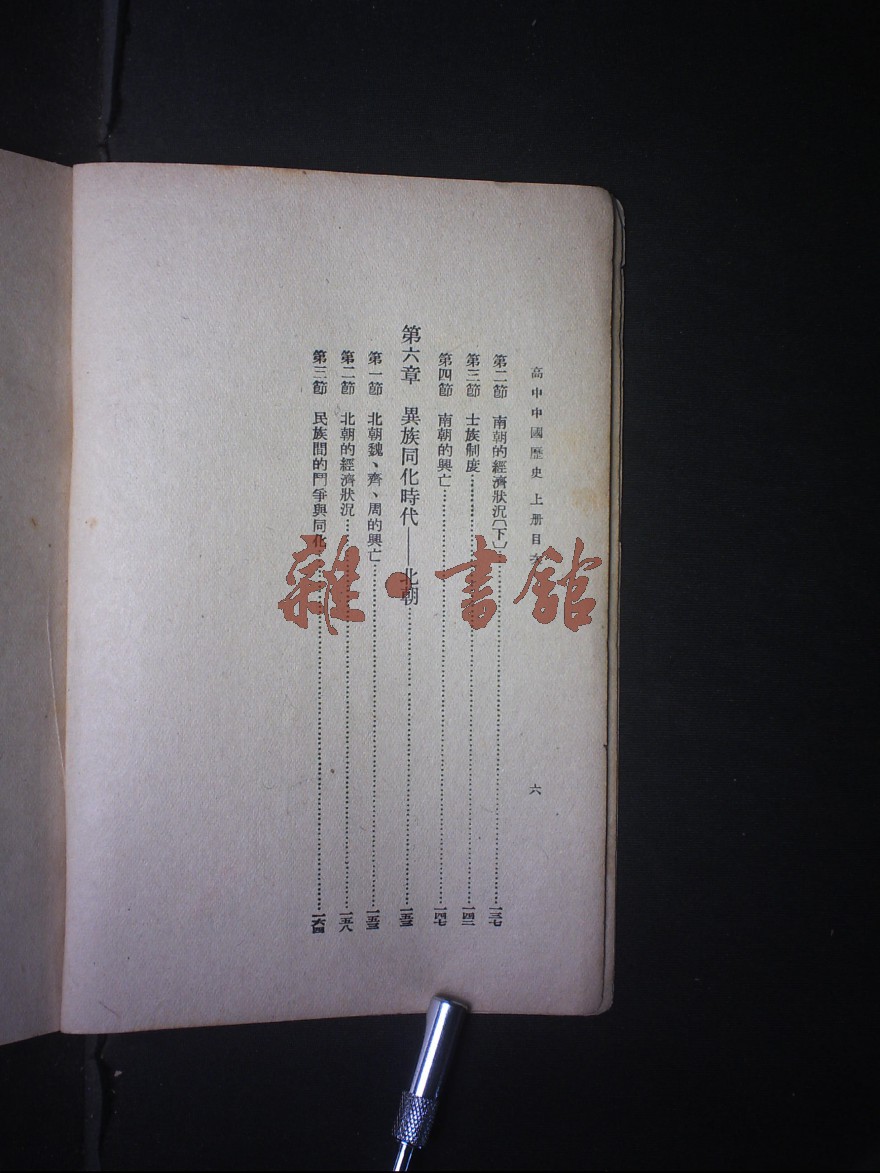 高中中國歷史 上册目次
六
第二節 南朝的經濟狀況(下)……一三七
第三節 士族制度……一四二
第四節 南朝的興亡……一四七
第六章 異族同化時代——北朝……一五三
第一節 北朝魏、齊、周的興亡……一五三
第二節 北朝的經濟狀況……一五八
第三節 民族間的鬥爭與同化……一六四
雜·書館